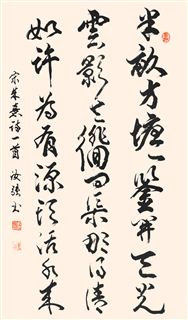 半畝方塘一鑒開天光
雲影共徘徊問渠那得清
如許為有源頭活水來
宋朱熹詩一首 書